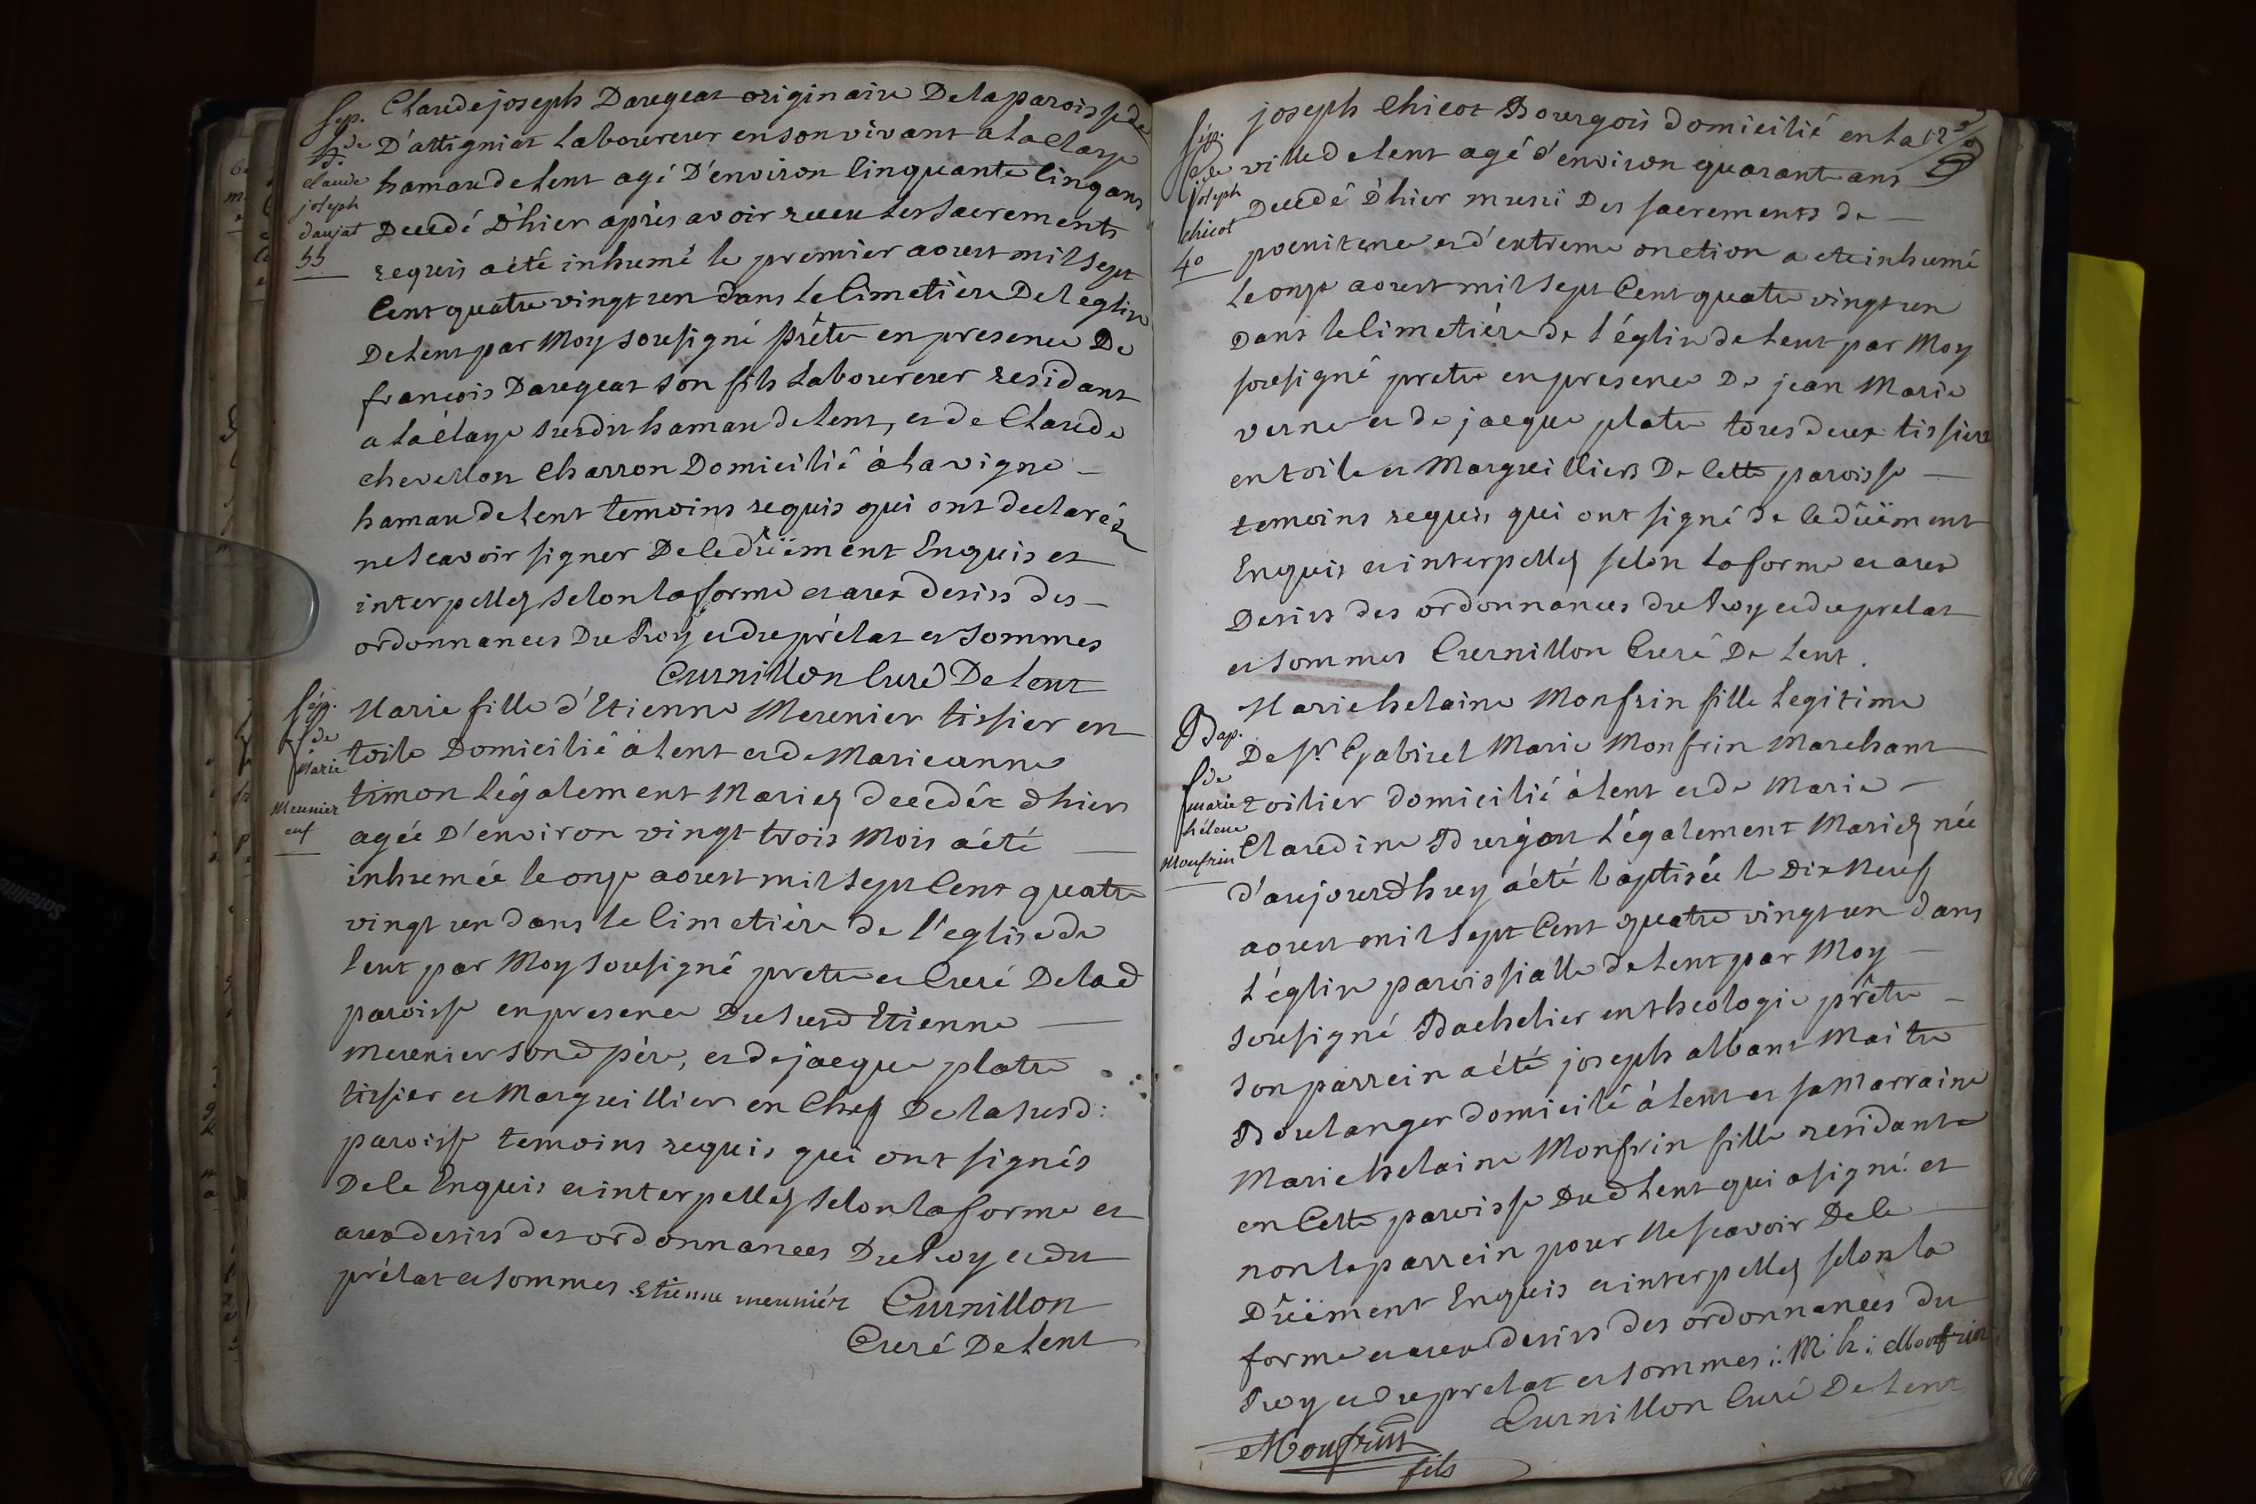 Sep.
de
claude
joseph
daujat
55
Claude joseph Daugeat originaire De la paroisse de
D'attigniat Laboureur en son vivant a La Claye
hamau de Lent agé D'environ Cinquante Cinq ans
Decedé D'hier après avoir receu Les Sacrements
requis a été inhumé le premier aoust mil Sept
Cent quatre vingt un dans Le Cimetière De L'eglise
De Lent par Moy sousigné Prêtre en presence De
françois Daugeat son fils Laboureur residant
a La Claye susdit hamau de Lent, et de Claude
chevillon Charron Domicilié à La vigne
hamau de Lent temoins requis qui ont declarés
ne Scavoir signer De Ce dûëment Enquis et
interpellez Selon la forme et aux desirs des
ordonnances Du Roy et du prélat et Sommes
Curnillon Curé De Lent
Sep.
de
Marie
Meunier
enf
Marie fille d'Etienne Meunier tissier en
toile Domicilié à Lent et de Marieanne
timon Légalement Mariez decedée d'hier
agée D'environ vingt trois Mois a été
inhumée le onze aoust mil Sept Cent quatre
vingt un dans le Cimetière de l'eglise de
Lent par Moy sousigné pretre et Curé De lad
paroisse en presence Du Susd Etienne
Meunier Sond père, et de jacque platre
tissier et Marguillier en Chef De la Susd:
paroisse temoins requis qui ont signés
De Ce Enquis et interpellez Selon la forme et
aux desirs des ordonnances Du Roy et du
prélat et Sommes Etienne meuniér Curnillon
Curé De Lent
12
Sep.
de
joseph
chicot
40
joseph Chicot Bourgois domicilié en la
ville de Lent agé d'environ quarante ans
Decedé D'hier muni Des sacrements de
poenitence et d'extreme onction a ete inhumé
Le onze aoust mil Sept Cent quatre vingt un
Dans le Cimetière de l'église de Lent par Moy
sousigné pretre en presence De jean Marie
verne et de jacque platre tous deux tissiers
en toile et Marguilliers De Cette paroisse
temoins requis qui ont signé de Ce dûëment
Enquis et interpellez selon La forme et aux
Desirs des ordonnances du Roy et du prelat
et Sommes Curnillon Curé De Lent.
Bap.
de
marie
hélene
Monfrin
Marie helaine Monfrin fille Legitime
De Sr. Gabriel Marie Monfrin Marchant
toilier domicilié à Lent et de Marie
Claudine Burgon Légalement Mariez née
d'aujourd'huy a été baptisée le Dix Neuf
aoust mil Sept Cent quatre vingt un dans
L'église paroissialle de Lent par Moy
sousigné Bachelier en theologie prêtre
son parrein a été joseph albant Maitre
Boulanger domicilé à Lent et sa Marraine
Marie helaine Monfrin fille residante
en Cette paroisse Dud Lent qui a signé et
non le parrein pour Ne scavoir De Ce
Dûëment Enquis et interpellez selon la
forme et aux desirs des ordonnances du
Roy et du prelat et Sommes :. M: h: Monfrin
Curnillon Curé De Lent
Monfrin
fils